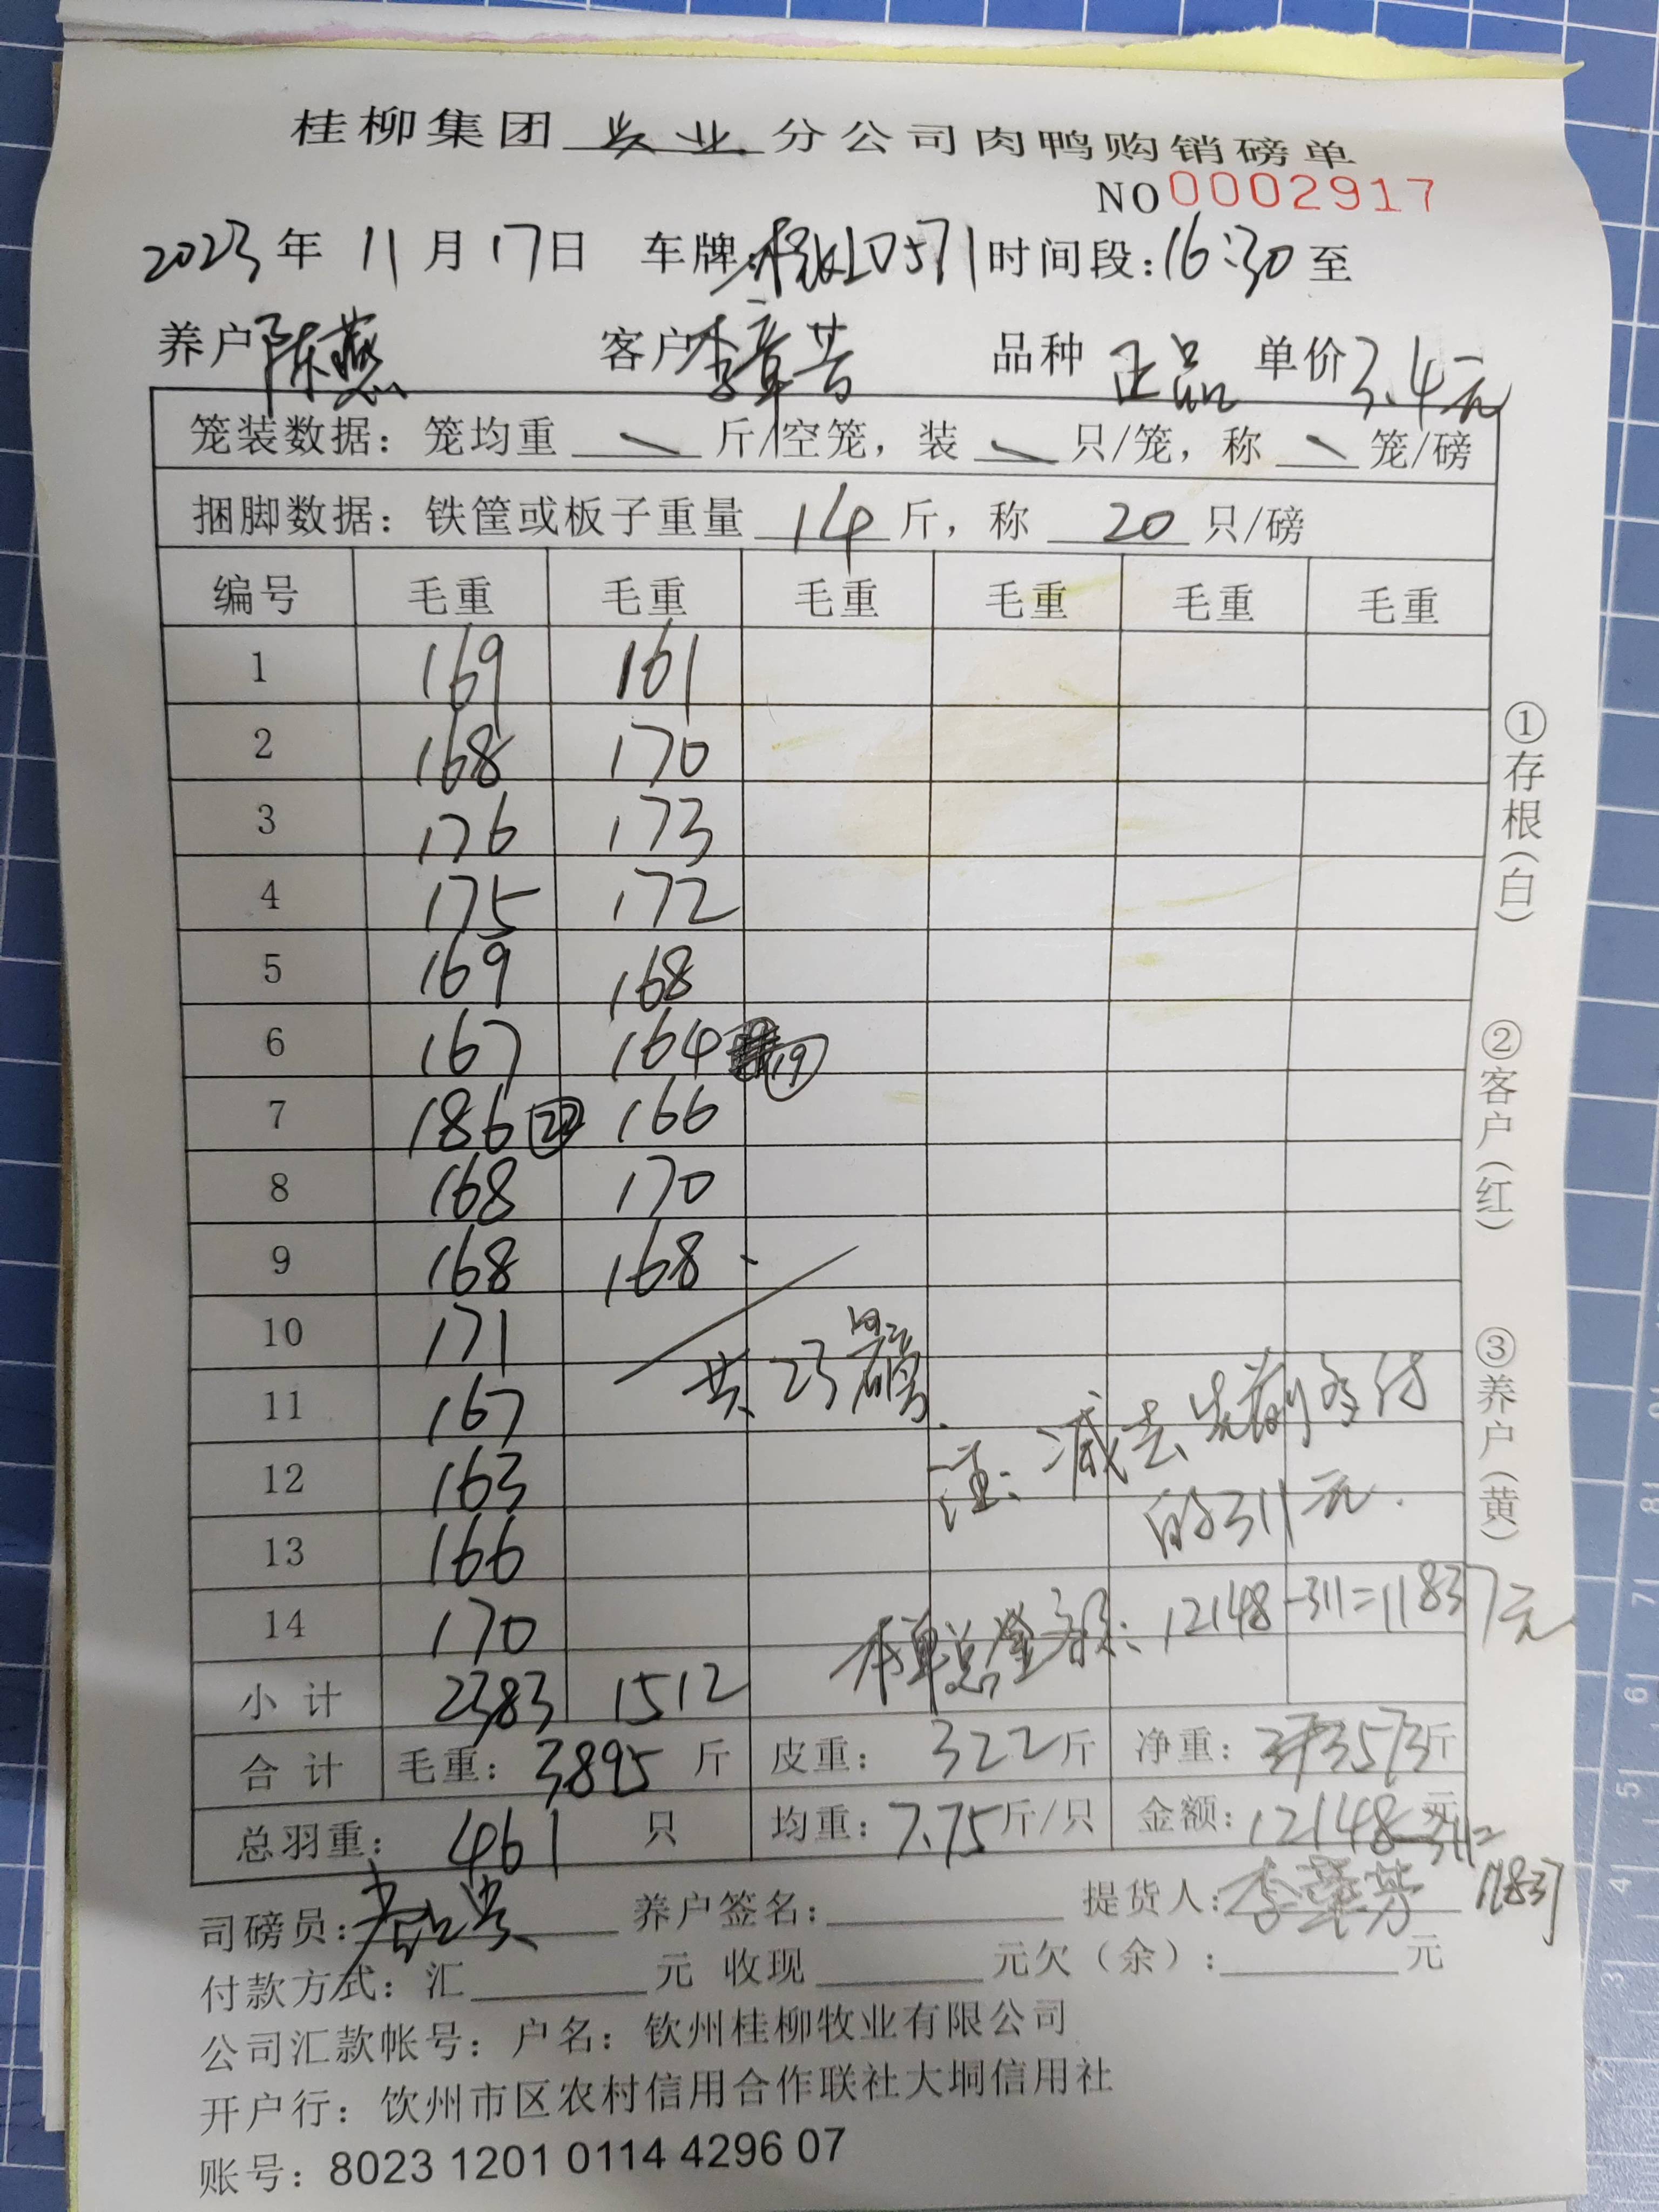 桂柳集团兴业分公司肉鸭购销磅单
NO 0002917
2023年11月17日 车牌:桂KL0571 时间段:16:30至
养户 陈燕 客户 李章芳 品种 正品 单价 3.4元
笼装数据:笼均重 斤/空笼,装 只/笼,称 笼/磅
捆脚数据:铁筐或板子重量 14 斤,称 20 只/磅
编号 毛重 毛重 毛重 毛重 毛重 毛重
1 169 161
2 168 170
3 176 173
4 175 172
5 169 168
6 167 164 ⑲
7 186 22 166
8 168 170
9 168 168
10 171
11 167 共23磅
12 163 注:减去先前多付
13 166 的311元.
14 170 本单总金额:12148-311=11837元
小计 2383 1512
合计 毛重:3895 斤 皮重:322斤 净重:3573斤
总羽重:461 只 均重:7.75斤/只 金额:12148元-311=
11837
司磅员: 养户签名: 提货人:李章芳
付款方式:汇 元 收现 元欠(余): 元
公司汇款帐号:户名:钦州桂柳牧业有限公司
开户行:钦州市区农村信用合作联社大垌信用社
账号:8023 1201 0114 4296 07
①存根(白)
②客户(红)
③养户(黄)